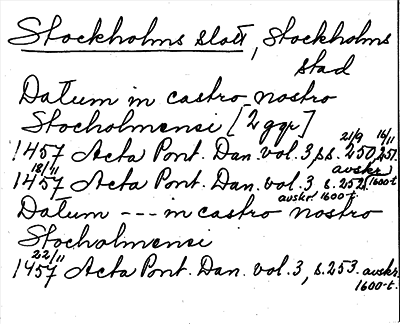 Stockholms slott, Stockholms
stad
Datum in castro nostro
Stocholmensi [2 ggr]
21/9 16/11
1457 Acta Pont. Dan. vol. 3, ss. 250, 251.
18/11 avskr. 1600-t
1457 Acta Pont. Dan. vol. 3 s. 252.
avskr. 1600-t.
Datum --- in castro nostro
Stocholmensi
22/11
1457 Acta Pont. Dan. vol. 3, s. 253. avskr.
1600-t.